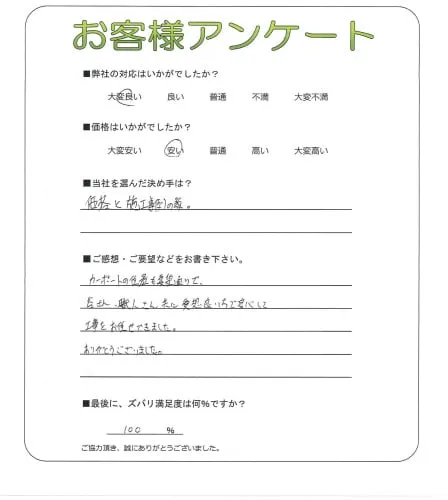 お客様アンケート
■弊社の対応はいかがでしたか？
大変良い 良い 普通 不満 大変不満
■価格はいかがでしたか？
大変安い 安い 普通 高い 大変高い
■当社を選んだ決め手は？
価格と施工事例の数。
■ご感想・ご要望などをお書き下さい。
カーポートの位置も希望通りで、
職人さん 感じ良いので安心して
工事をお任せできました。
ありがとうございました。
■最後に、ズバリ満足度は何％ですか？
100 ％
ご協力頂き、誠にありがとうございました。